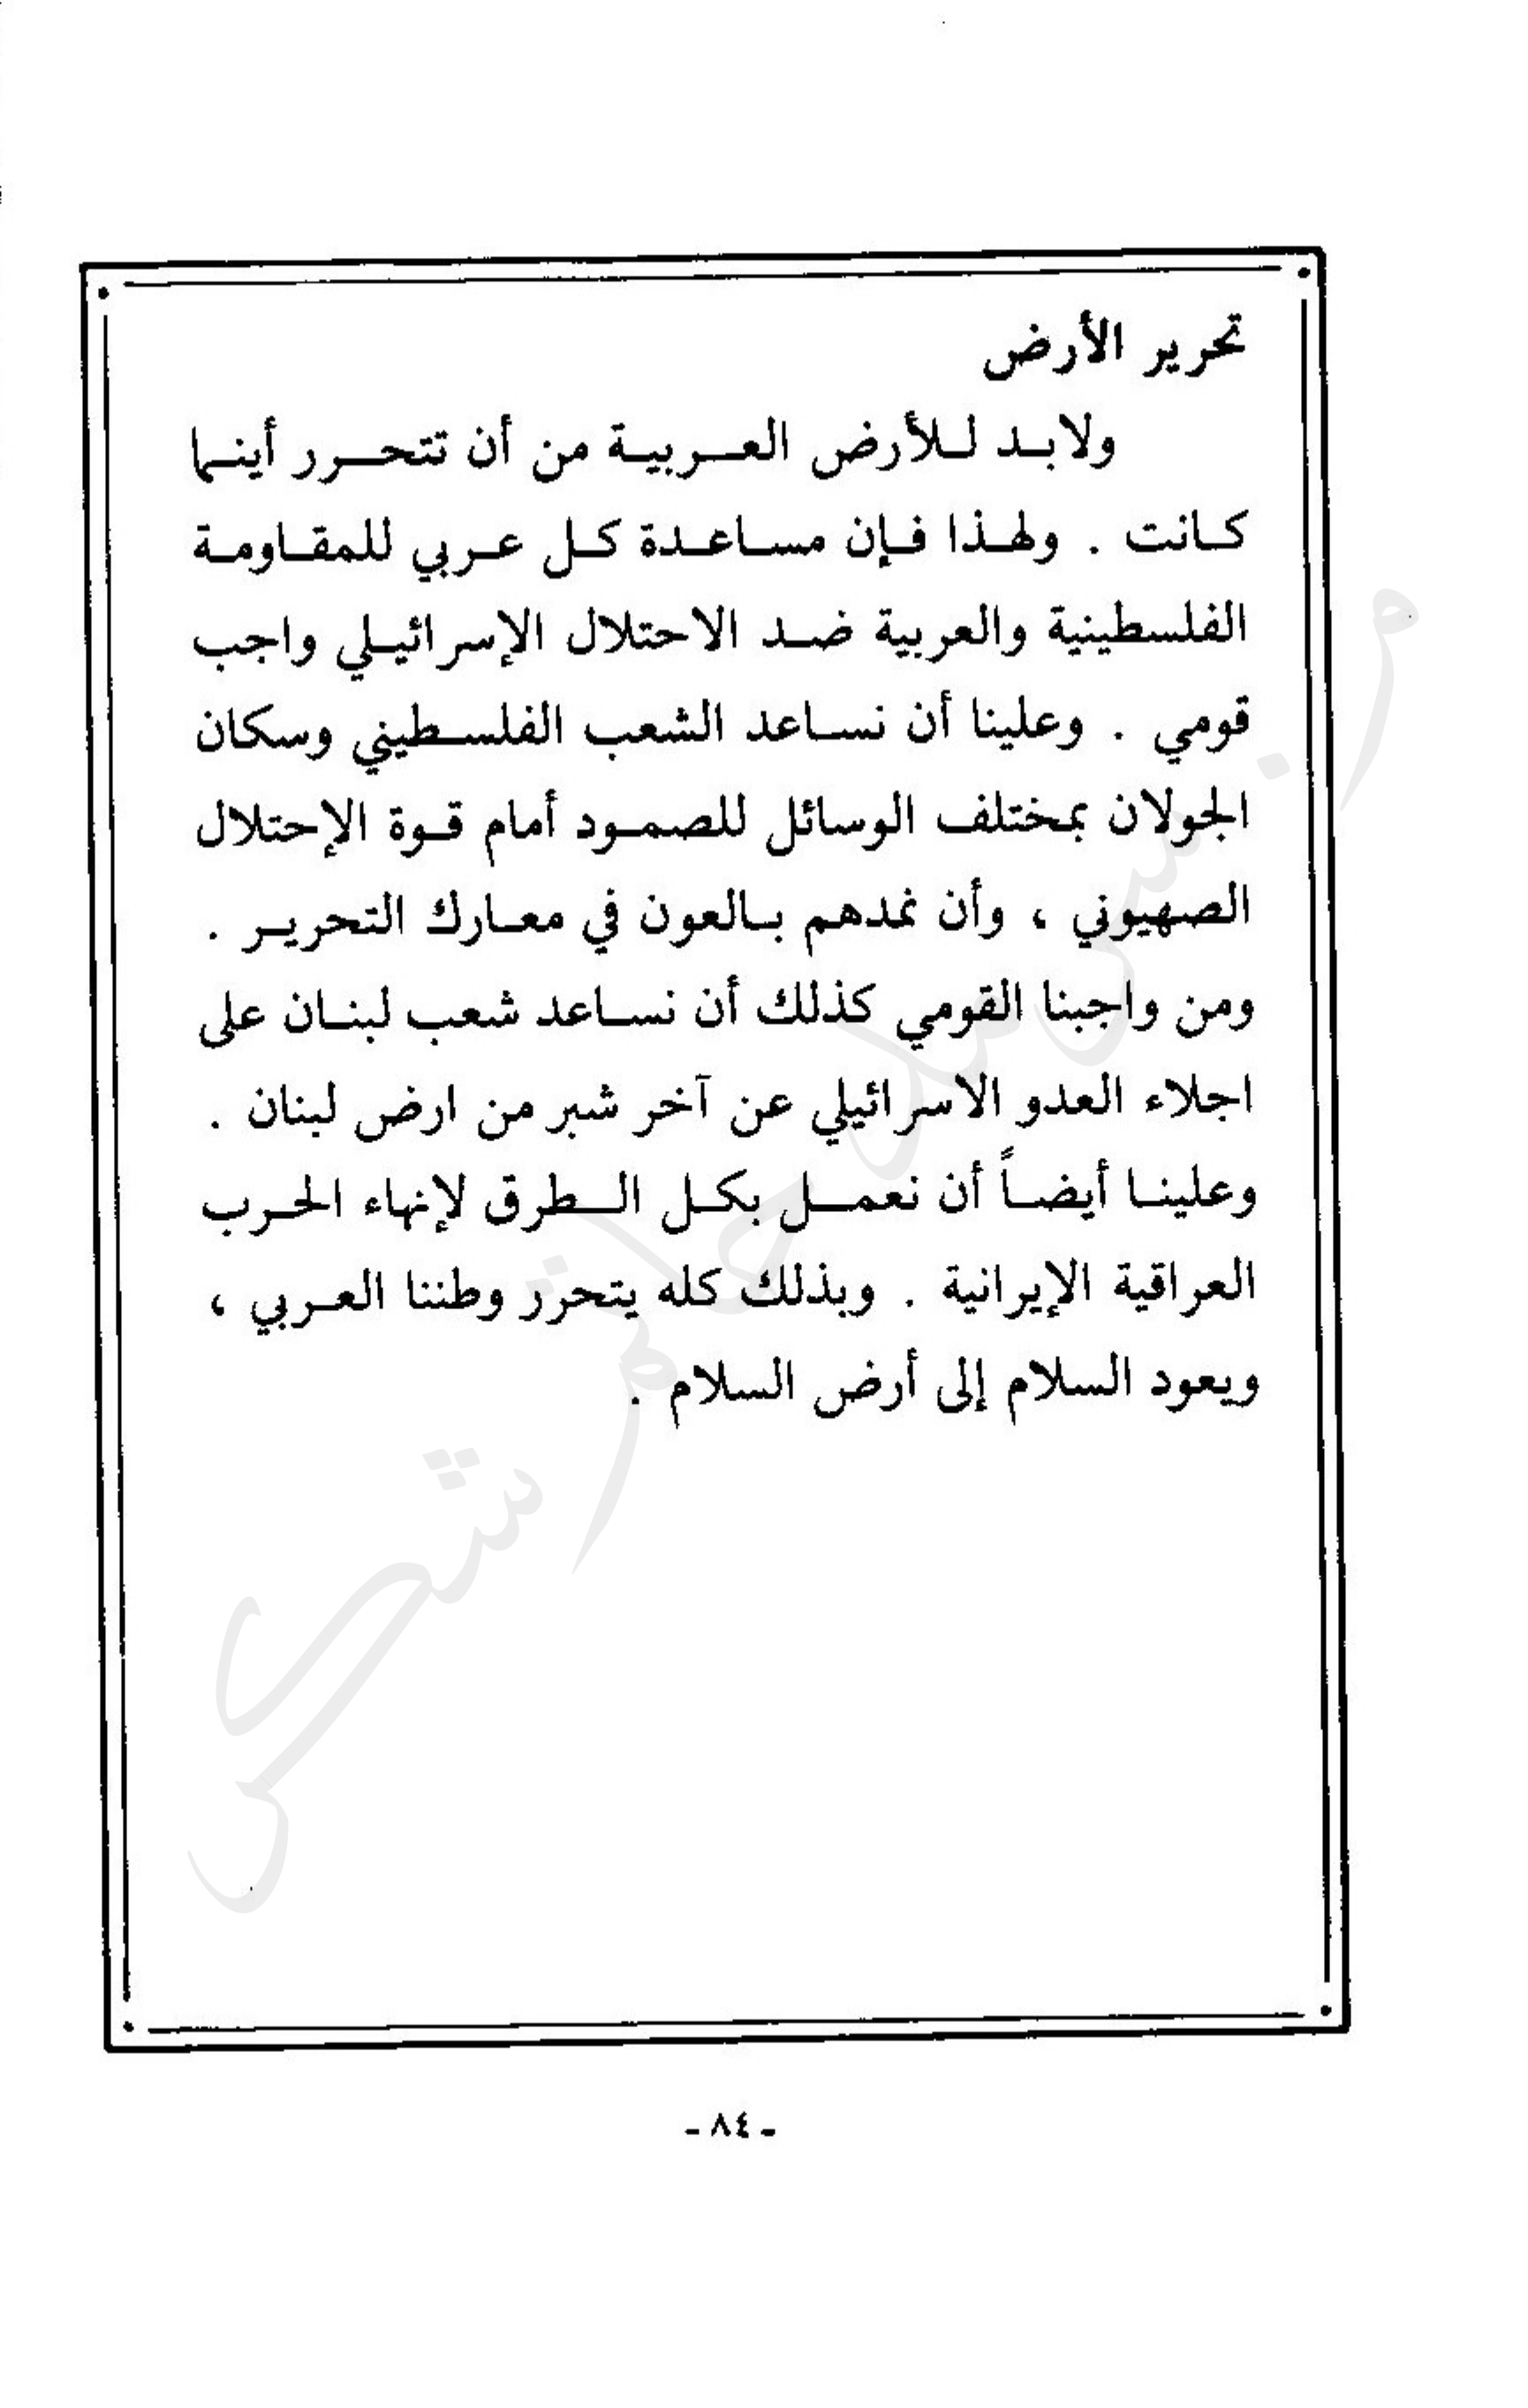 تحرير الأرض
ولابد للأرض العربية من أن تتحرر أينما
كانت . ولهذا فإن مساعدة كل عربي للمقاومة
الفلسطينية والعربية ضد الاحتلال الإسرائيلي واجب
قومي . وعلينا أن نساعد الشعب الفلسطيني وسكان
الجولان بمختلف الوسائل للصمود أمام قوة الإحتلال
الصهيوني ، وأن نمدهم بالعون في معارك التحرير .
ومن واجبنا القومي كذلك أن نساعد شعب لبنان على
اجلاء العدو الاسرائيلي عن آخر شبر من ارض لبنان .
وعلينا أيضاً أن نعمل بكل الطرق لإنهاء الحرب
العراقية الإيرانية . وبذلك كله يتحرر وطننا العربي ،
ويعود السلام إلى أرض السلام .
- ٨٤ -